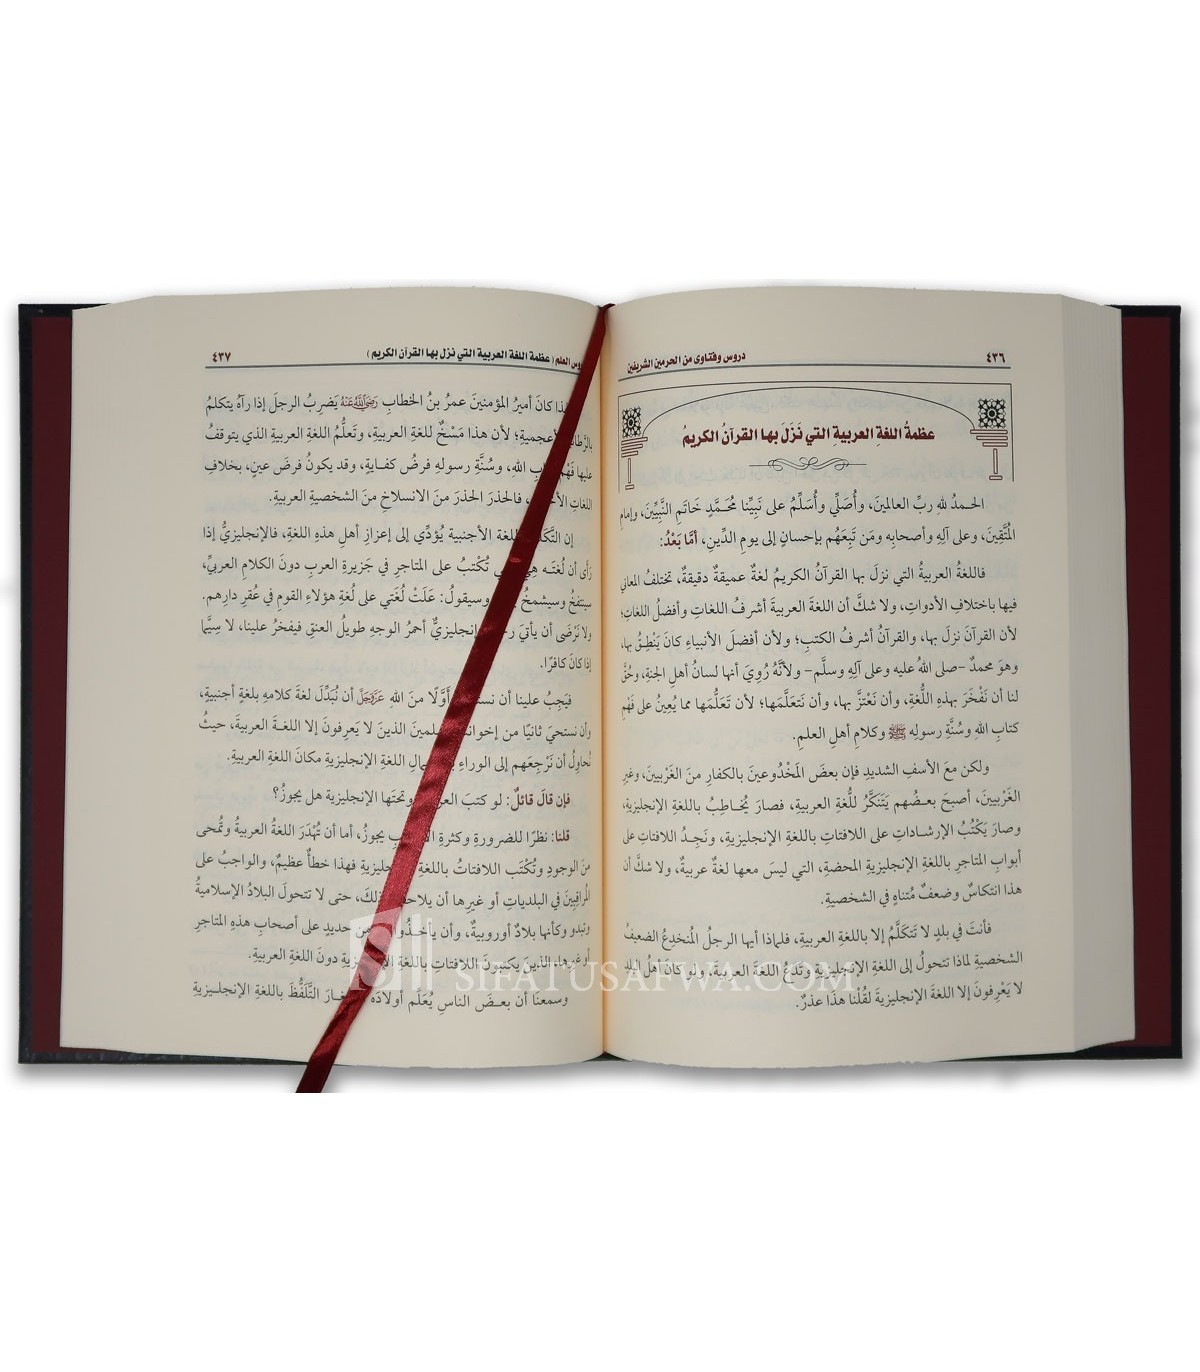 ٤٣٦
دروس وفتاوى من الحرمين الشريفين
عظمةُ اللغةِ العربيةِ التي نَزَلَ بها القرآنُ الكريمُ
الحمدُ للهِ ربِّ العالمينَ، وأُصَلِّي وأُسَلِّمُ على نَبِيِّنا مُحَمَّدٍ خَاتَمِ النَّبِيِّينَ، وإمامِ
المُتَّقِينَ، وعلى آلِهِ وأصحابِه ومَن تَبِعَهُم بإحسانٍ إلى يومِ الدِّينِ، أمَّا بَعْدُ:
فاللغةُ العربيةُ التي نزلَ بها القرآنُ الكريمُ لغةٌ عميقةٌ دقيقةٌ، تختلفُ المعاني
فيها باختلافِ الأدواتِ، ولا شكَّ أن اللغةَ العربيةَ أشرفُ اللغاتِ وأفضلُ اللغاتِ؛
لأن القرآنَ نزلَ بها، والقرآنُ أشرفُ الكتبِ؛ ولأن أفضلَ الأنبياءِ كانَ يَنْطِقُ بها،
وهوَ محمدٌ -صلى اللهُ عليه وعلى آلِهِ وسلَّم- ولأنَّهُ رُوِيَ أنها لسانُ أهلِ الجنةِ، وحُقَّ
لنا أن نَفْخَرَ بهذِهِ اللُّغةِ، وأن نَعْتزَّ بها، وأن نَتعلَّمَها؛ لأن تَعَلُّمَها مما يُعِينُ على فَهْمِ
كتابِ اللهِ وسُنَّةِ رسولِه ﷺ وكلامِ أهلِ العلمِ.
ولكن معَ الأسفِ الشديدِ فإن بعضَ المَخْدُوعينَ بالكفارِ منَ الغَرْبيينَ، وغيرِ
الغَرْبيينَ، أصبحَ بعضُهم يَتَنَكَّرُ للُّغةِ العربيةِ، فصارَ يُخَاطِبُ باللغةِ الإنجليزيةِ،
وصارَ يَكْتُبُ الإرشاداتِ على اللافتاتِ باللغةِ الإنجليزيةِ، ونَجِدُ اللافتاتِ على
أبوابِ المتاجرِ باللغةِ الإنجليزيةِ المحضةِ، التي ليسَ معها لغةٌ عربيةٌ، ولا شكَّ أن
هذا انتكاسٌ وضعفٌ مُتناهٍ في الشخصيةِ.
فأنتَ في بلدٍ لا تَتكلَّمُ إلا باللغةِ العربيةِ، فلماذا أيها الرجلُ المُنخدِعُ الضعيفُ
الشخصيةِ لماذا تتحولُ إلى اللغةِ الإنجليزيةِ وتَدَعُ اللغةَ العربيةَ، ولو كانَ أهلُ البلدِ
لا يَعْرِفونَ إلا اللغةَ الإنجليزيةَ لقُلْنا هذا عذرٌ.
العلم (عظمة اللغة العربية التي نزل بها القرآن الكريم)
٤٣٧
كانَ أميرُ المؤمنينَ عمرُ بنُ الخطابِ رَضِيَ اللَّهُ عَنْهُ يَضرِبُ الرجلَ إذا رآهُ يتكلمُ
الأعجميةِ؛ لأن هذا مَسْخٌ للغةِ العربيةِ، وتَعلُّمُ اللغةِ العربيةِ الذي يتوقفُ
عليها فَهْمُ اللهِ، وسُنَّةِ رسولِهِ فرضُ كفايةٍ، وقد يكونُ فرضَ عينٍ، بخلافِ
اللغاتِ فالحذرَ الحذرَ منَ الانسلاخِ منَ الشخصيةِ العربيةِ.
إن للغة الأجنبيةِ يُؤدِّي إلى إعزازِ أهلِ هذهِ اللغةِ، فالإنجليزيُّ إذا
رَأى أن لُغَتَه تُكْتبُ على المتاجرِ في جَزيرةِ العربِ دونَ الكلامِ العربيِّ،
سينتفخُ وسيشمخُ وسيقولُ: عَلَتْ لُغَتي على لُغةِ هؤلاءِ القومِ في عُقرِ دارِهم.
ولا نَرْضَى أن يأتيَ إنجليزيٌّ أحمرُ الوجهِ طويلُ العنقِ فيفخرُ علينا، لا سِيَّما
إذا كانَ كافرًا.
فيَجِبُ علينا أن أوَّلًا منَ اللهِ عَزَّوَجَلَّ أن نُبَدِّلَ لغةَ كلامِهِ بلغةٍ أجنبيةٍ،
وأن نستحيَ ثانيًا من الذينَ لا يَعرِفونَ إلا اللغةَ العربيةَ، حيثُ
نُحاوِلُ أن نَرْجِعَهم إلى الوراءِ اللغةِ الإنجليزيةِ مكانَ اللغةِ العربيةِ.
فإن قالَ قائلٌ: لو كتبَ وتحتَها الإنجليزيةَ هل يجوزُ؟
قلنا: نظرًا للضرورةِ وكثرةِ يجوزُ، أما أن تُهْدَرَ اللغةُ العربيةُ وتُمحَى
منَ الوجودِ وتُكْتَب اللافتاتُ باللغةِ فهذا خطأٌ عظيمٌ، والواجبُ على
المُراقِبِينَ في البلدياتِ أو غيرِها أن حتى لا تتحولَ البلادُ الإسلاميةُ
وتبدو وكأنها بلادٌ أوروبيةٌ، وأن من حديدٍ على أصحابِ هذهِ المتاجرِ
أو غيرِها الذينَ يكتبونَ اللافتاتِ باللغةِ دونَ اللغةِ العربيةِ.
وسمعنا أن بعضَ الناسِ يُعَلِّم أولادَهُ التَّلَفُّظَ باللغةِ الإنجليزيةِ
SIFATUSAFWA.COM